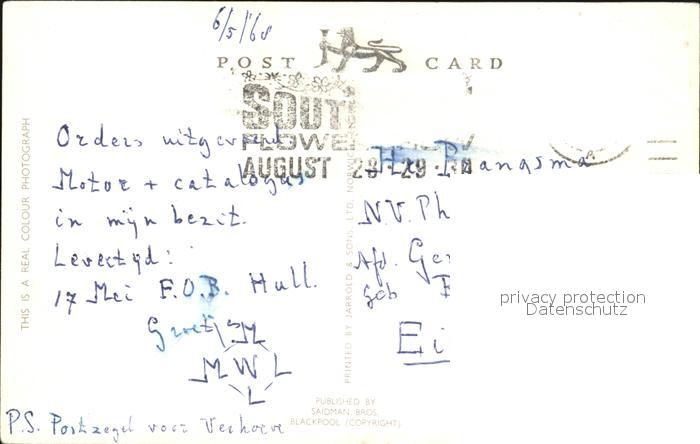 6/5/'68
POST CARD
SOUT
FLOWE
AUGUST 28-29-
Orders uitgevoerd
Motor + catalogus
in mijn bezit.
Levertijd:
17 Mei F.O.B. Hull.
Groetjes
M
M W L
L
P.S. Postzegel voor Verhoeve
N.V. Ph
Afd. Ge
Geb
Ei
THIS IS A REAL COLOUR PHOTOGRAPH
PRINTED BY JARROLD & SONS, LTD, NOR
PUBLISHED BY
SAIDMAN BROS.
BLACKPOOL (COPYRIGHT)
privacy protection
Datenschutz